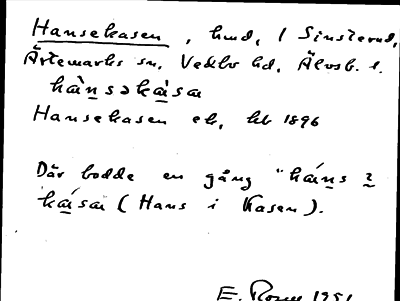 Hansekasen, hmd, / Sinsterud,
Ärtemarks sn, Vedbo hd, Älvsb. l.
hàn̲səkàsa
Hansekasen ek, kb 1896
Där bodde en gång "hán̲s i̲
kása (Hans i Kasen).
E. 1951